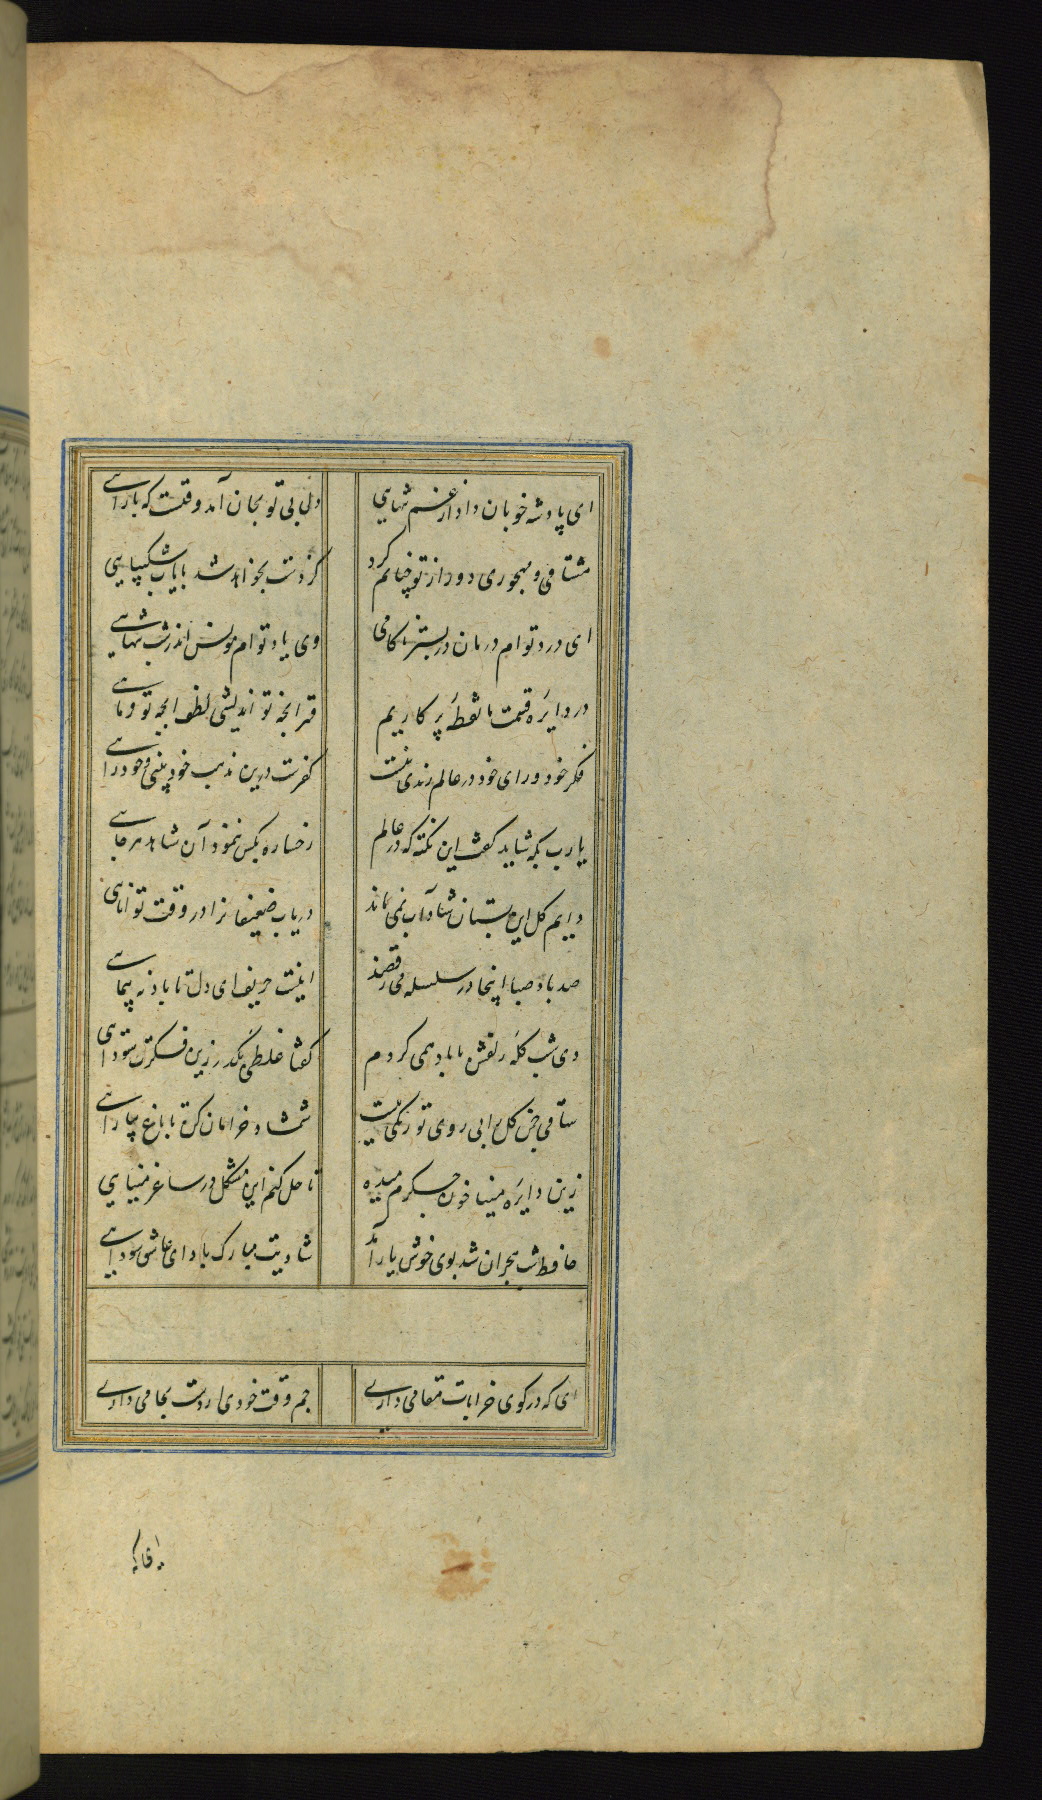 ای پادشه خوبان داد از غم تنهایی دل بی تو بجان آمد وقتست که باز آیی
مشتاقی و مهجوری دور از تو چنانم کرد کز دست بخواهد شد پایاب شکیبایی
ای درد توام درمان در بستر ناکامی وی یاد توام مونس اندر شب تنهایی
در دایره قسمت ما نقطه پرکاریم لطف آنچه تو
فکر خود و رای خود در عالم رندی نیست کفرست درین مذهب خودبینی و خودرایی
یارب بکه شاید گفت این نکته که در عالم رخساره بکس ننمود آن شاهد هرجایی
دایم گل این بستان شاداب نمی ماند دریاب ضعیفانرا در وقت توانایی
صد باد صبا اینجا در سلسله می رقصند اینست حریف ای دل تا باد نه پیمایی
دی شب گله زلفش با باد همی کردم گفتا غلطی بگذر زین فکرت سودایی
ساقی چمن گل را بی روی تو رنگی نیست شمشاد خرامان کن تا باغ بیارایی
زین دایره مینا خونین جگرم میده تا حل کنم این مشکل در ساغر مینایی
حافظ شب هجران شد بوی خوش یار آمد شادیت مبارک باد ای عاشق شیدایی
ای که در کوی خرابات مقامی داری جم وقت خودی ار دست بجامی داری